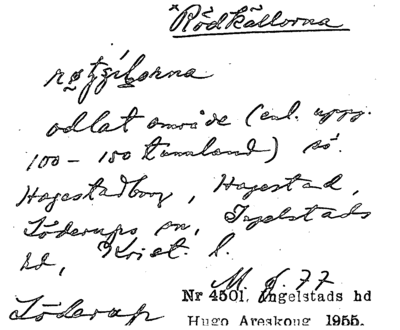 × Rödkällorna
odlat område (enl. uppg.
100 – 150 tunnland) sö.
Hagestadborg, Hagestad,
Löderups sn, Ingelstads
hd, Krist. l.
M. J. 77
Nr 4501. Ingelstads hd
Löderup
Hugo Areskoug 1955.